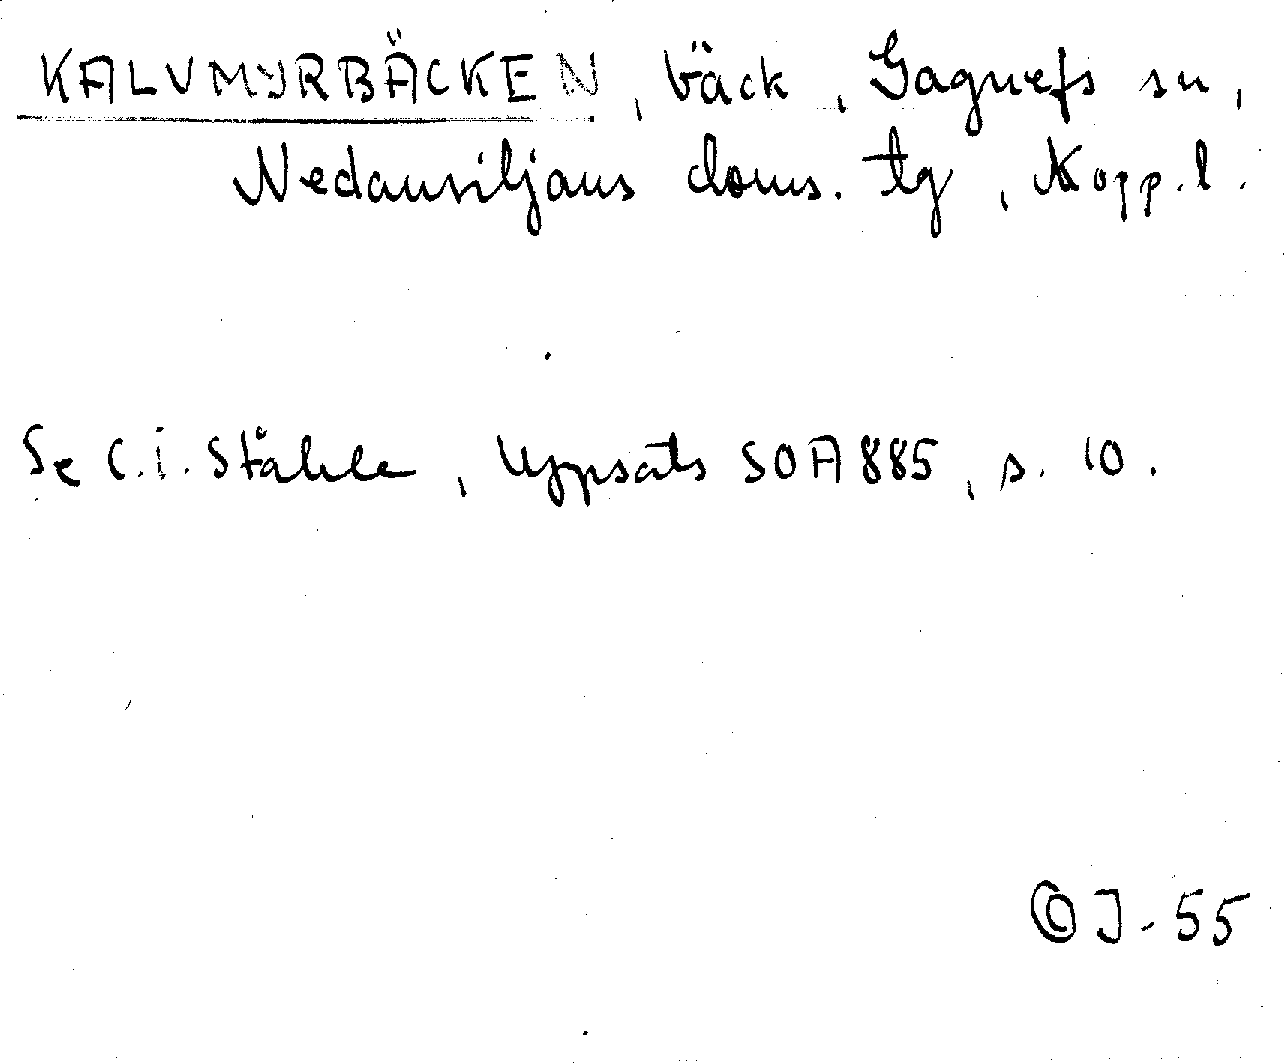 KALVMYRBÄCKEN, bäck, Gagnefs sn,
Nedansiljans doms. tg, Kopp. l.
Se C. I. Ståhle, Uppsats SOA 885, s. 10.
OJ-55